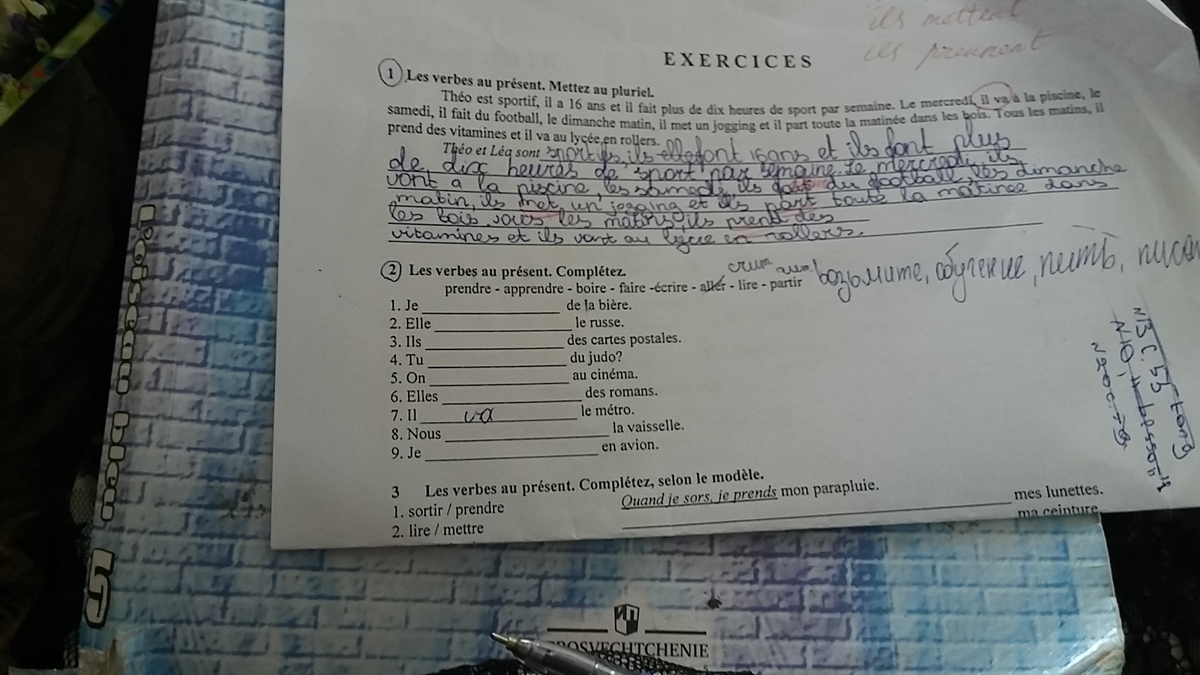 ils mettent
ils prennent
EXERCICES
1 Les verbes au présent. Mettez au pluriel.
Théo est sportif, il a 16 ans et il fait plus de dix heures de sport par semaine. Le mercredi, il va à la piscine, le
samedi, il fait du football, le dimanche matin, il met un jogging et il part toute la matinée dans les bois. Tous les matins, il
prend des vitamines et il va au lycée en rollers.
Théo et Léa sont sportifs, ils font 16 ans et ils font plus
de dix heures de sport par semaine. Le mercredi, ils
vont a la piscine, les samedi, ils du football, les dimanche
matin, ils met un jogging et ils part toute la matinée dans
les bois les matins, ils prent des
vitamines et ils vont au lycée en rollers.
2 Les verbes au présent. Complétez.
prendre - apprendre - boire - faire -écrire - aller - lire - partir
возьмите, обучение, пить,
1. Je ______ de la bière.
2. Elle ______ le russe.
3. Ils ______ des cartes postales.
4. Tu ______ du judo?
5. On ______ au cinéma.
6. Elles ______ des romans.
7. Il va le métro.
8. Nous ______ la vaisselle.
9. Je ______ en avion.
3 Les verbes au présent. Complétez, selon le modèle.
1. sortir / prendre Quand je sors, je prends mon parapluie.
2. lire / mettre ______ mes lunettes.
ma ceinture
N3 c. 53
L'oiseau bleu 5
PROSVECHTCHENIE